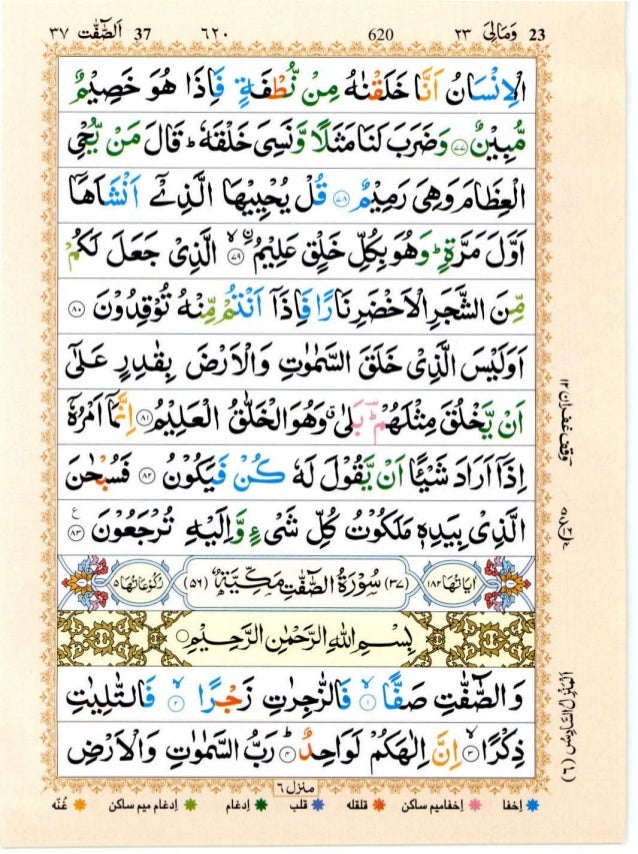 اَلصّٰٓفّٰت ٣٧ 37 ٦٢٠ 620 وَمَالِىَ ٢٣ 23
الْاِنْسَانُ اَنَّا خَلَقْنٰهُ مِنْ نُّطْفَةٍ فَاِذَا هُوَ خَصِيْمٌ
مُّبِيْنٌ ﴿٧٧﴾ وَضَرَبَ لَنَا مَثَلًا وَّنَسِىَ خَلْقَهٗ ؕ قَالَ مَنْ يُّحْىِ
الْعِظَامَ وَهِىَ رَمِيْمٌ ﴿٧٨﴾ قُلْ يُحْيِيْهَا الَّذِىْۤ اَنْشَاَهَاۤ
اَوَّلَ مَرَّةٍ ؕ وَهُوَ بِكُلِّ خَلْقٍ عَلِيْمُ ۙ ﴿٧٩﴾ الَّذِىْ جَعَلَ لَكُمْ
مِّنَ الشَّجَرِ الْاَخْضَرِ نَارًا فَاِذَاۤ اَنْتُمْ مِّنْهُ تُوْقِدُوْنَ ﴿٨٠﴾
اَوَلَيْسَ الَّذِىْ خَلَقَ السَّمٰوٰتِ وَالْاَرْضَ بِقٰدِرٍ عَلٰٓى
اَنْ يَّخْلُقَ مِثْلَهُمْ ؕ بَلٰى ۗ وَهُوَ الْخَلّٰقُ الْعَلِيْمُ ﴿٨١﴾ اِنَّمَاۤ اَمْرُهٗۤ
اِذَاۤ اَرَادَ شَيْـًٔا اَنْ يَّقُوْلَ لَهٗ كُنْ فَيَكُوْنُ ﴿٨٢﴾ فَسُبْحٰنَ
الَّذِىْ بِيَدِهٖ مَلَكُوْتُ كُلِّ شَىْءٍ وَّاِلَيْهِ تُرْجَعُوْنَ ﴿٨٣﴾ ع
اٰيَاتُهَا ١٨٢ (٣٧) سُوْرَةُ الصّٰٓفّٰتِ مَكِّيَّةٌ (٥٦) رُكُوْعَاتُهَا ٥
بِسْمِ اللهِ الرَّحْمٰنِ الرَّحِيْمِ
وَالصّٰٓفّٰتِ صَفًّا ۙ ﴿١﴾ فَالزّٰجِرٰتِ زَجْرًا ۙ ﴿٢﴾ فَالتّٰلِيٰتِ
ذِكْرًا ۙ ﴿٣﴾ اِنَّ اِلٰهَكُمْ لَوَاحِدٌ ؕ ﴿٤﴾ رَبُّ السَّمٰوٰتِ وَالْاَرْضِ
منزل ٦
وقف غفران ١٢
اَلْمَنْزِلُ السَّادِسُ (٦)
اِخفا اِخفامیم ساکن قلقله قلب اِدغام اِدغام میم ساکن غُنّه